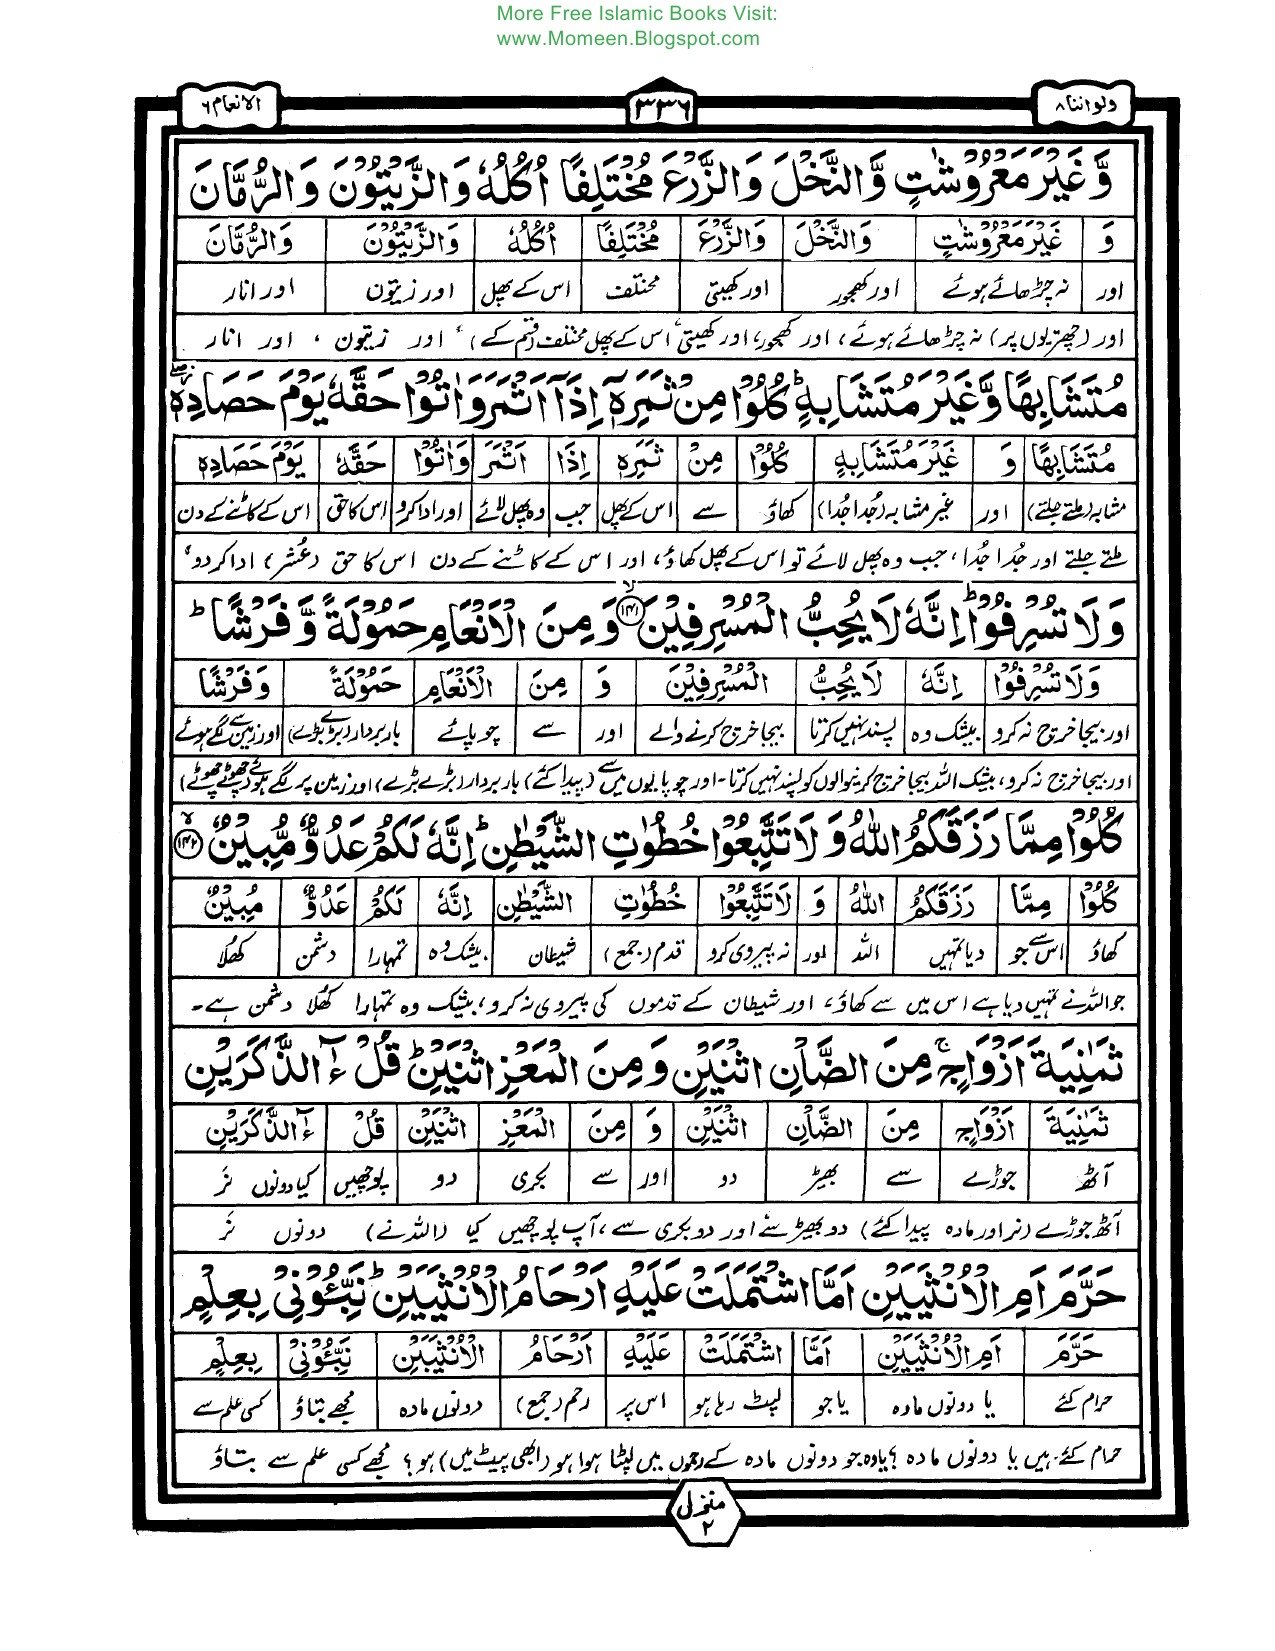 More Free Islamic Books Visit:
www.Momeen.Blogspot.com
ولواننا ۸
۳۳۶
الانعام ۶
وَّغَيْرَ مَعْرُوْشٰتٍ وَّالنَّخْلَ وَالزَّرْعَ مُخْتَلِفًا اُكُلُهٗ وَالزَّيْتُوْنَ وَالرُّمَّانَ
وَ غَيْرَ مَعْرُوْشٰتٍ وَالنَّخْلَ وَالزَّرْعَ مُخْتَلِفًا اُكُلُهٗ وَالزَّيْتُوْنَ وَالرُّمَّانَ
اور نہ چڑھائے ہوئے اور کھجور اور کھیتی مختلف اس کے پھل اور زیتون اور انار
اور (چھتریوں پر) نہ چڑھائے ہوئے، اور کھجور، اور کھیتی، اس کے پھل مختلف (قسم کے)، اور زیتون، اور انار
مُتَشَابِهًا وَّغَيْرَ مُتَشَابِهٍ ؕ كُلُوْا مِنْ ثَمَرِهٖۤ اِذَاۤ اَثْمَرَ وَاٰتُوْا حَقَّهٗ يَوْمَ حَصَادِهٖ
مُتَشَابِهًا وَ غَيْرَ مُتَشَابِهٍ كُلُوْا مِنْ ثَمَرِهٖ اِذَا اَثْمَرَ وَاٰتُوْا حَقَّهٗ يَوْمَ حَصَادِهٖ
مشابہ (ملتے جلتے) اور غیر مشابہ (جُدا جُدا) کھاؤ سے اس کے پھل جب وہ پھل لائے اور ادا کرو اس کا حق اس کے کاٹنے کے دن
ملتے جلتے اور جُدا جُدا، جب وہ پھل لائے تو اس کے پھل کھاؤ، اور اس کے کاٹنے کے دن اس کا حق (عُشر) ادا کر دو،
وَلَا تُسْرِفُوْا ؕ اِنَّهٗ لَا يُحِبُّ الْمُسْرِفِيْنَ ۱۴۱ وَمِنَ الْاَنْعَامِ حَمُوْلَةً وَّفَرْشًا ؕ
وَلَا تُسْرِفُوْا اِنَّهٗ لَا يُحِبُّ الْمُسْرِفِيْنَ وَ مِنَ الْاَنْعَامِ حَمُوْلَةً وَفَرْشًا
اور بیجا خرچ نہ کرو بیشک وہ پسند نہیں کرتا بیجا خرچ کرنے والے اور سے چوپائے باربردار (بڑے بڑے) اور زمین سے لگے ہوئے
اور بیجا خرچ نہ کرو، بیشک اللہ بیجا خرچ کرنیوالوں کو پسند نہیں کرتا ۔ اور چوپایوں میں سے (پیدا کئے) باربردار (بڑے بڑے) اور زمین پر لگے ہوئے (چھوٹے چھوٹے)
كُلُوْا مِمَّا رَزَقَكُمُ اللّٰهُ وَلَا تَتَّبِعُوْا خُطُوٰتِ الشَّيْطٰنِ ؕ اِنَّهٗ لَكُمْ عَدُوٌّ مُّبِيْنٌ ۱۴۲
كُلُوْا مِمَّا رَزَقَكُمُ اللّٰهُ وَ لَا تَتَّبِعُوْا خُطُوٰتِ الشَّيْطٰنِ اِنَّهٗ لَكُمْ عَدُوٌّ مُبِيْنٌ
کھاؤ اس سے جو دیا تمہیں اللہ اور نہ پیروی کرو قدم (جمع) شیطان بیشک وہ تمہارا دشمن کھُلا
جو اللہ نے تمہیں دیا ہے اس میں سے کھاؤ، اور شیطان کے قدموں کی پیروی نہ کرو، بیشک وہ تمہارا کھُلا دشمن ہے ۔
ثَمٰنِيَةَ اَزْوَاجٍ ۚ مِنَ الضَّاْنِ اثْنَيْنِ وَمِنَ الْمَعْزِ اثْنَيْنِ ؕ قُلْ ءٰٓالذَّكَرَيْنِ
ثَمٰنِيَةَ اَزْوَاجٍ مِنَ الضَّاْنِ اثْنَيْنِ وَ مِنَ الْمَعْزِ اثْنَيْنِ قُلْ ءٰٓالذَّكَرَيْنِ
آٹھ جوڑے سے بھیڑ دو اور سے بکری دو پوچھیں کیا دونوں نر
آٹھ جوڑے (نر اور مادہ پیدا کئے) دو بھیڑ سے، اور دو بکری سے، آپ پوچھیں کیا (اللہ نے) دونوں نر
حَرَّمَ اَمِ الْاُنْثَيَيْنِ اَمَّا اشْتَمَلَتْ عَلَيْهِ اَرْحَامُ الْاُنْثَيَيْنِ ؕ نَبِّـُٔوْنِيْ بِعِلْمٍ
حَرَّمَ اَمِ الْاُنْثَيَيْنِ اَمَّا اشْتَمَلَتْ عَلَيْهِ اَرْحَامُ الْاُنْثَيَيْنِ نَبِّـُٔوْنِيْ بِعِلْمٍ
حرام کئے یا دونوں مادہ یا جو لپٹ رہا ہو اس پر رحم (جمع) دونوں مادہ مجھے بتاؤ کسی علم سے
حرام کئے ہیں یا دونوں مادہ؟ یا وہ جو دونوں مادہ کے رحموں میں لپٹا ہوا ہو (ابھی پیٹ میں) ہو؟ مجھے کسی علم سے بتاؤ
منزل ۲